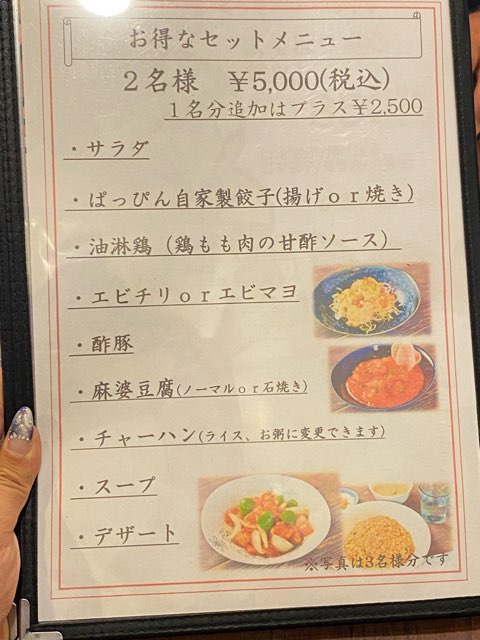 お得なセットメニュー
２名様　￥5,000(税込)
１名分追加はプラス￥2,500
・サラダ
・ぱっぴん自家製餃子(揚げｏｒ焼き)
・油淋鶏（鶏もも肉の甘酢ソース）
・エビチリｏｒエビマヨ
・酢豚
・麻婆豆腐(ノーマルｏｒ石焼き)
・チャーハン(ライス、お粥に変更できます)
・スープ
・デザート
※写真は3名様分です